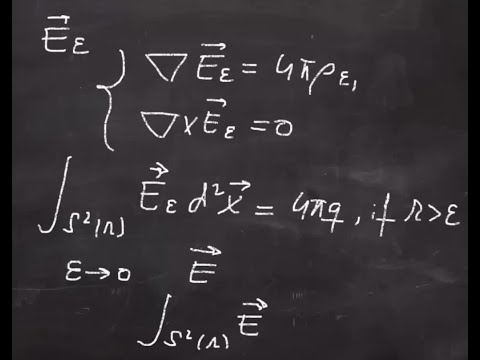 E⃗_ε
{ ∇ E⃗_ε = 4πρ_ε,
∇ × E⃗_ε = 0
∫_{S²(r)} E⃗_ε d²x⃗ = 4πq, if r>ε
ε→0 E⃗
∫_{S²(r)} E⃗